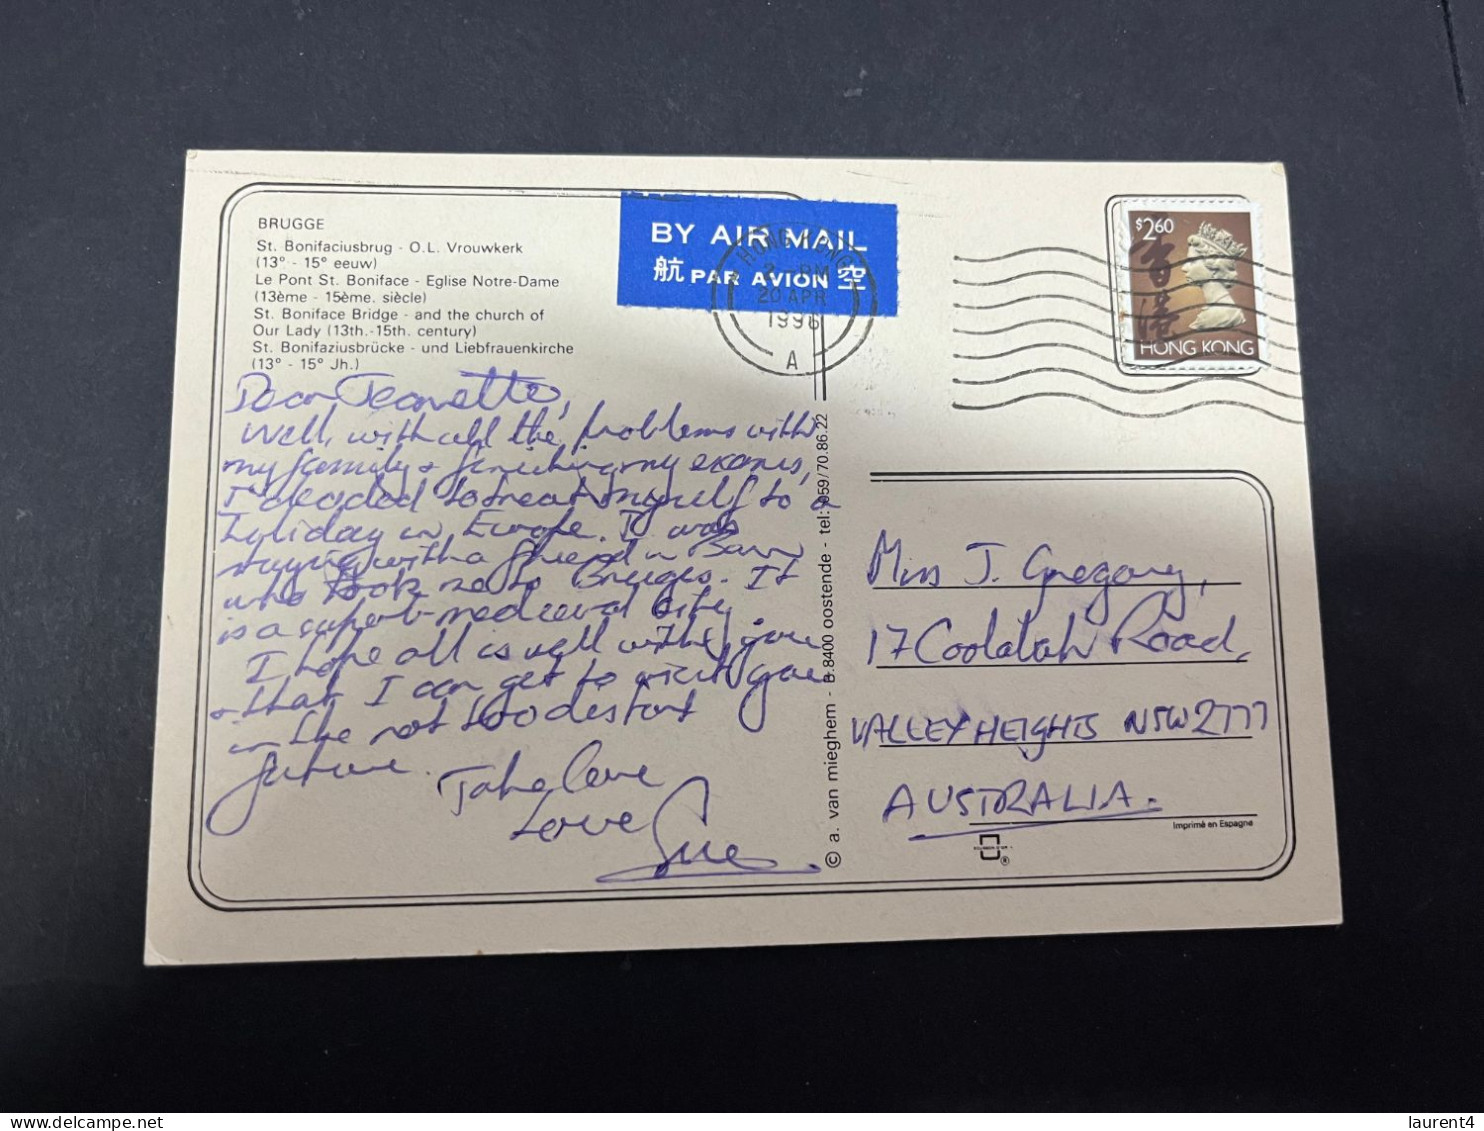 BRUGGE
St. Bonifaciusbrug - O.L. Vrouwkerk
(13° - 15° eeuw)
Le Pont St. Boniface - Eglise Notre-Dame
(13ème - 15ème. siècle)
St. Boniface Bridge - and the church of
Our Lady (13th.-15th. century)
St. Bonifaziusbrücke - und Liebfrauenkirche
(13° - 15° Jh.)
Dear Jeanette,
Well, with all the problems with
my family & finishing my exams,
I decided to treat myself to a
holiday in Europe. I was
staying with a friend in
who took me to Bruges. It
is a superb medieval city.
I hope all is well with you
& that I can get to visit you
in the not too distant
future. Take Care
Love Sue
BY AIR MAIL
航 PAR AVION 空
HONG KONG
PM
20 APR
1996
A
$2.60
香港
HONG KONG
© a. van mieghem - B.8400 oostende - tel: 059/70.86.22
Miss J. Gregory,
17 Coolabah Road,
VALLEY HEIGHTS NSW 2777
AUSTRALIA.
Imprimé en Espagne
®
laurent4